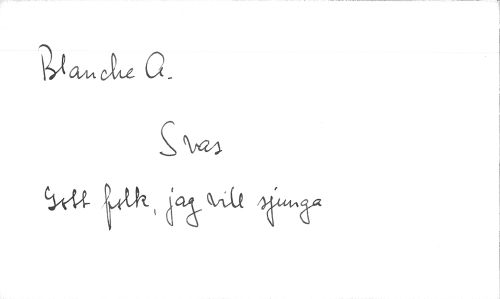 Blanche A.
Svas
Gott folk, jag vill sjunga